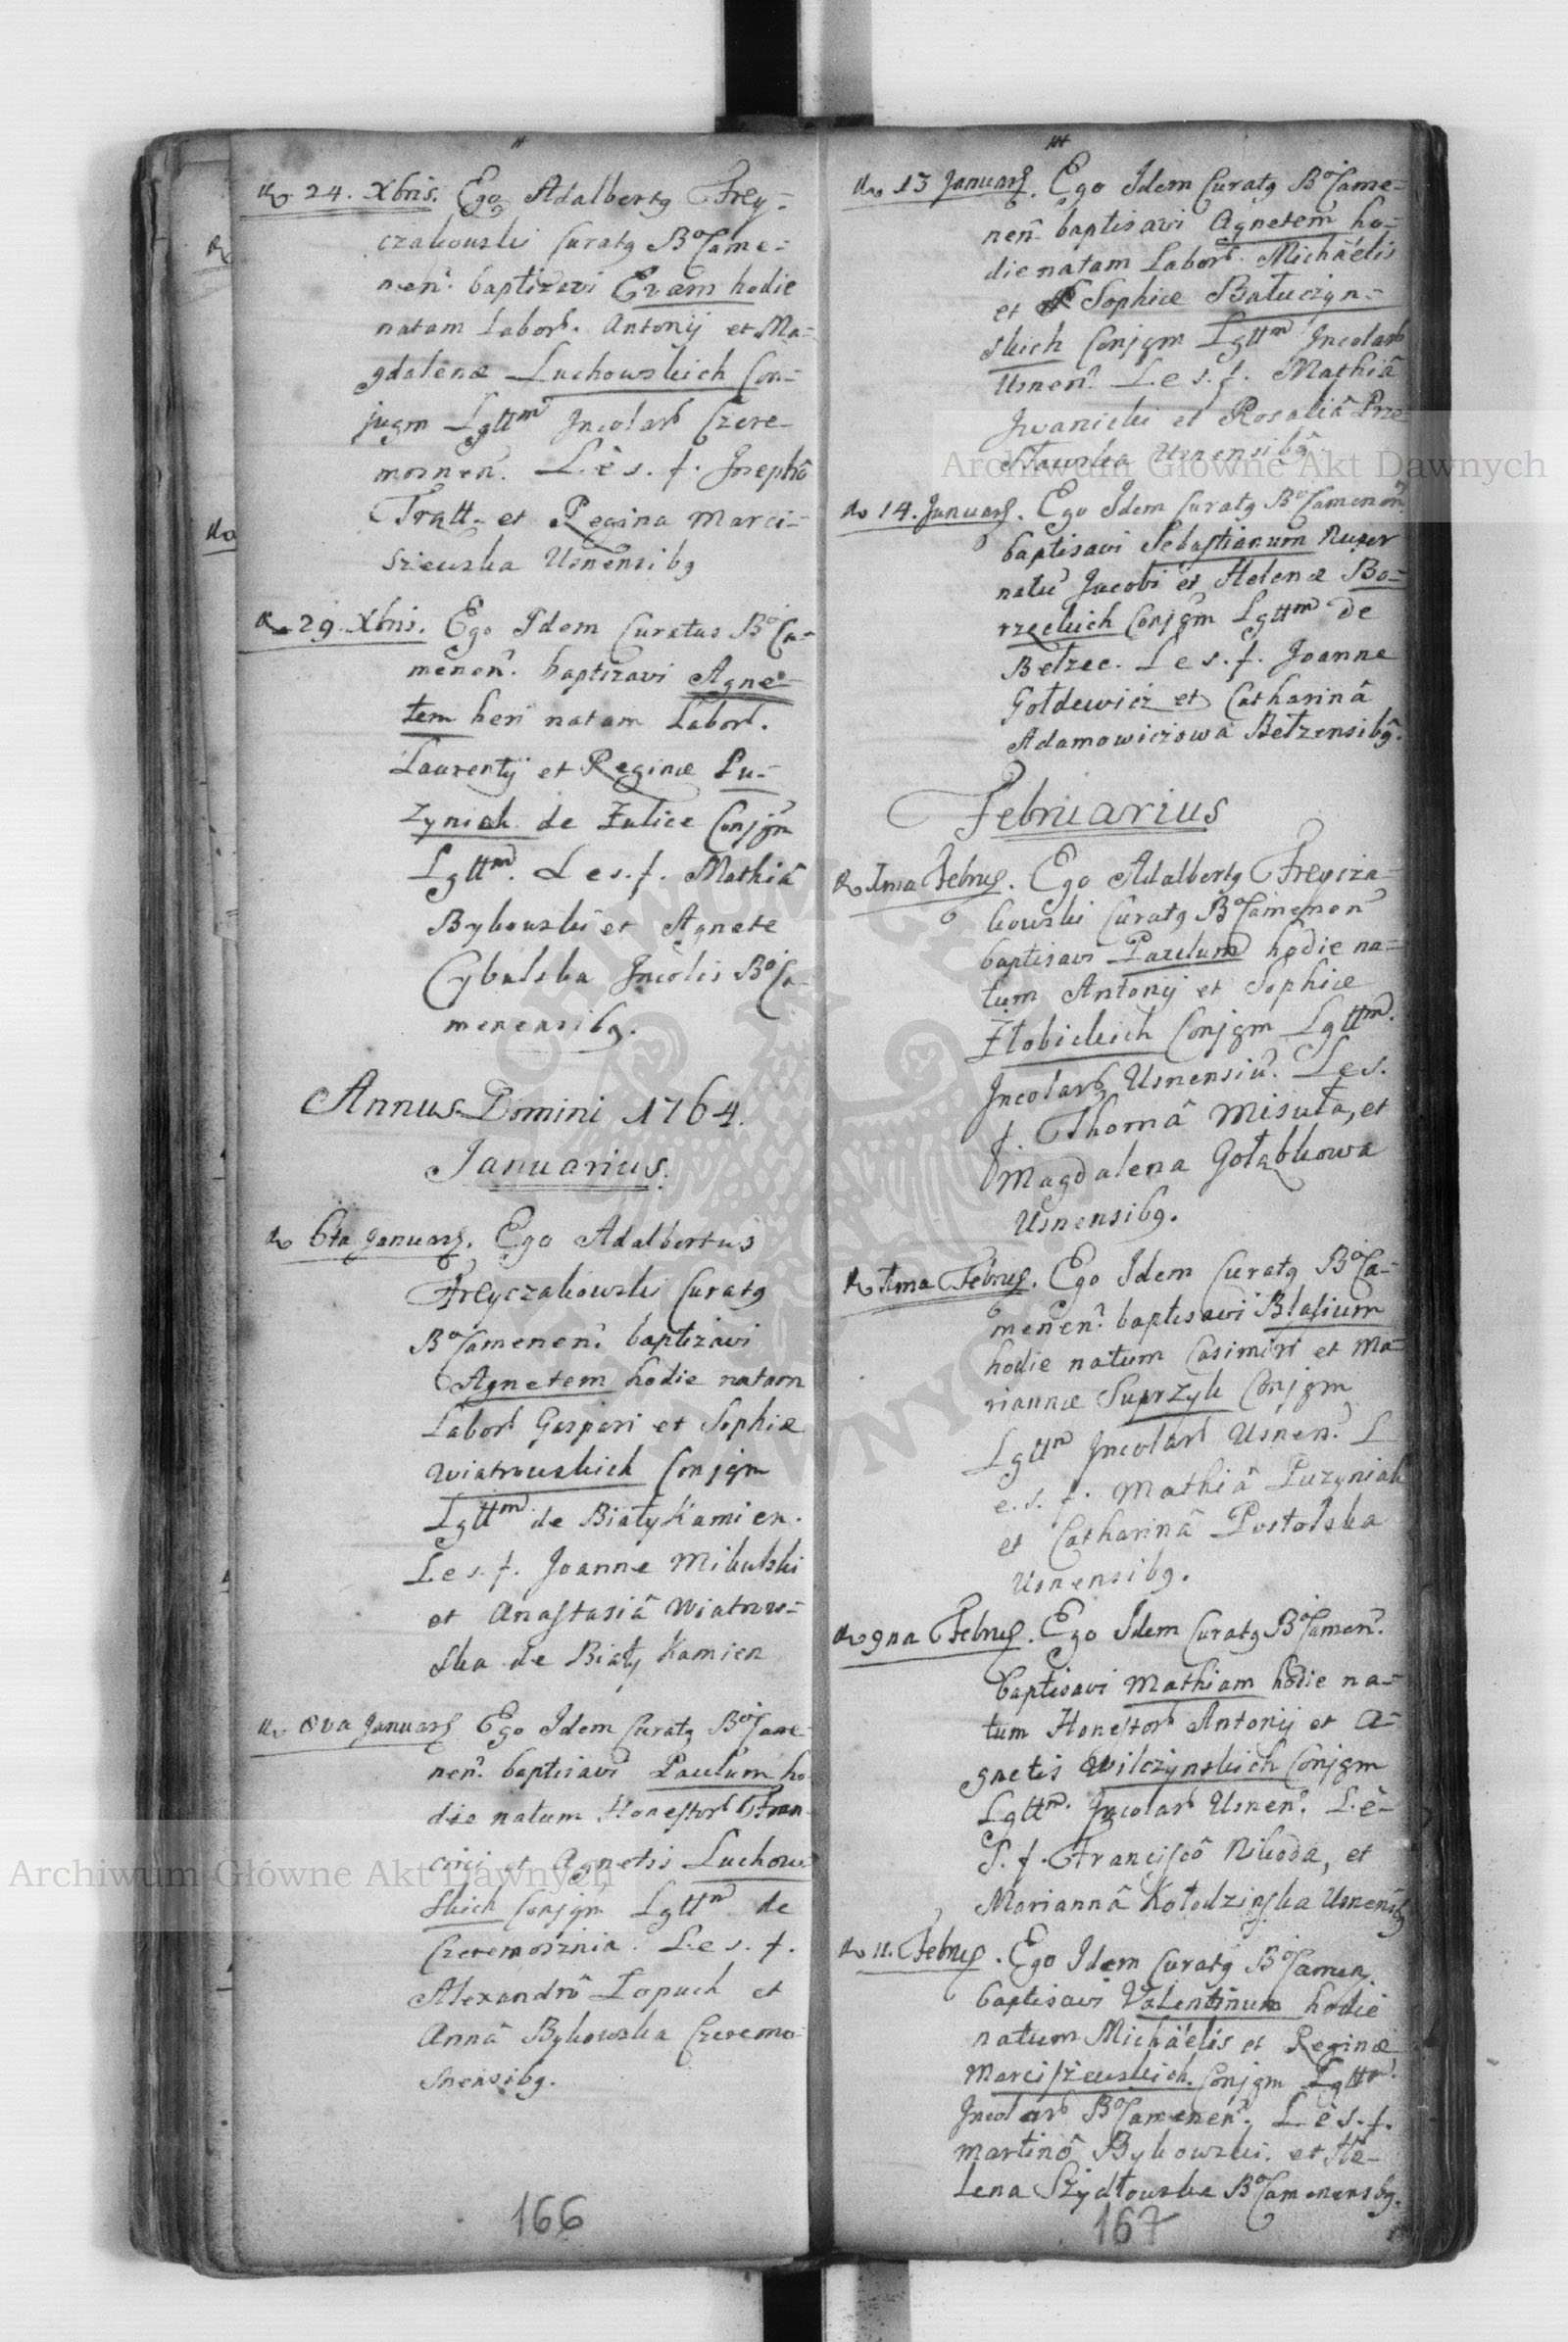 24. Xbris. Ego Adalbertg Frey-
czakowski Curatg BoCame-
nen. baptizavi Evam hodie
natam Labor. Antonij et Ma-
gdalenæ Luchowskich Con-
jugm Lgttm Incolar Czere-
mosnen. L. e s. f. Josephô
Tratt. et Regina Marci-
szewska Usnensibg
29. Xbris. Ego Idem Curatus BoCa-
menen. baptizavi Agne-
tem heri natam Labor.
Laurentij et Reginæ Pu-
zyniak de Żulice Conjgm
Lgttm. L e s. f. Mathiâ
Bykowski et Agnete
Cybulska Incolis BoCa-
menensibg.
Annus Domini 1764.
Januarius.
6ta Januarj. Ego Adalbertus
Freyczakowski Curatg
BoCamenen. baptizavi
Agnetem hodie natam
Labor Gaspari et Sophiæ
Wiatrowskich Conjgm
Lgttm. de Białykamien.
L e s. f. Joanne Mikulski
et Anastasiâ Wiatrow-
ska de Biały Kamien
8va Januarj Ego Idem Curatg BoCame-
nen. baptizavi Paulum ho-
die natum Honestor Fran-
cisci et Agnetis Luchow-
skich Conjgm Lgttm de
Czeremosznia. L. e s. f.
Alexandrô Łopuch et
Annâ Bykowska Czeremo-
snensibg.
166
13 Januarj. Ego Idem Curatg BoCame-
nen baptisavi Agnetem ho-
die natam Labor. Michaëlis
et Sophiæ Bałuczyn-
skich Conjgm Lgttm Incolar
Usnen. L e s. f. Mathiâ
Iwanicki et Rosaliâ Prze
sławska Usnensibg.
14. Januarj. Ego Idem Curatg BoCamenen
baptisavi Sebastianum nuper
natū Jacobi et Helenæ Bo-
rzęckich Conjgm Lgttm de
Bełzec. L e s. f. Joanne
Gołdewicz et Catharinâ
Adamowiczowa Bełzensibg.
Februarius
1ma Februj. Ego Adalbertg Freycza-
kowski Curatg BoCamenen
baptisavi Paulum hodie na-
tum Antonij et Sophiæ
Złobickich Conjgm Lgttm.
Incolar Usnensiū. L e s.
f. Thomâ Misuła, et
Magdalena Gołąbkowa
Usnensibg.
1ma Februj. Ego Idem Curatg BoCa-
menen. baptisavi Blasium
hodie natum Casimiri et Ma-
riannæ Suprzyk Conjgm
Lgttm Incolar Usnen. L
e. s. f. Mathiâ Puzyniak
et Catharinâ Postolska
Usnensibg.
9na Februj. Ego Idem Curatg BoCamen.
baptisavi Mathiam hodie na-
tum Honestor Antonij et A-
gnetis Wilczynskich Conjgm
Lgttm. Incolar Usnen. L. e
S. f. Franciscô Nikoda, et
Mariannâ Kołodzinska Usnensibg
11. Februj. Ego Idem Curatg BoCamen.
baptisavi Valentinum hodie
natum Michaëlis et Reginæ
Marciszewskich Conjgm Lgttm.
Incolar BoCamenen. L. e s. f.
Martinô Bykowski. et He-
lena Szydłowska BoCamenensbg.
167
Archiwum Główne Akt Dawnych
Archiwum Główne Akt Dawnych